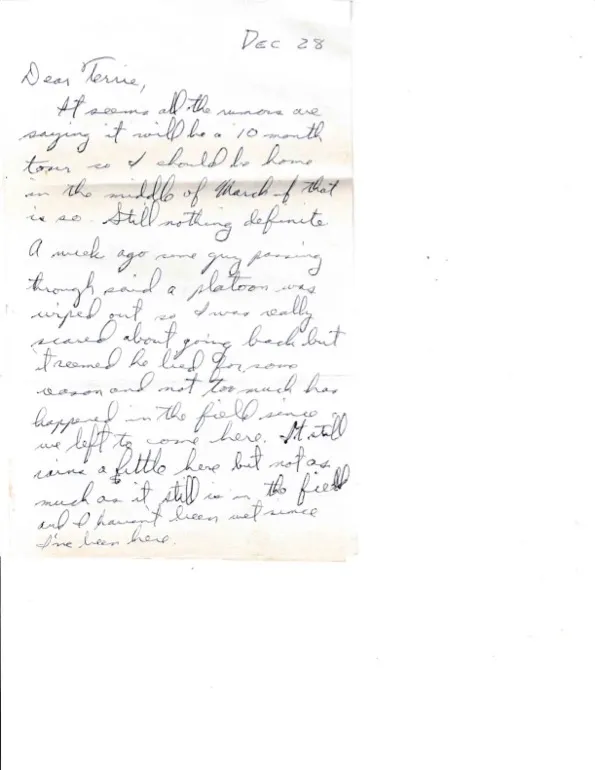 Dec 28
Dear Terrie,
It seems all the rumors are
saying it will be a 10 month
tour so I should be home
in the middle of March if that
is so. Still nothing definite
A week ago some guy passing
through said a platoon was
wiped out so I was really
scared about going back but
it seemed he lied for some
reason and not too much has
happened in the field since
we left to come here. It still
rains a little here but not as
much as it still is in the field
and I haven't been wet since
I've been here.